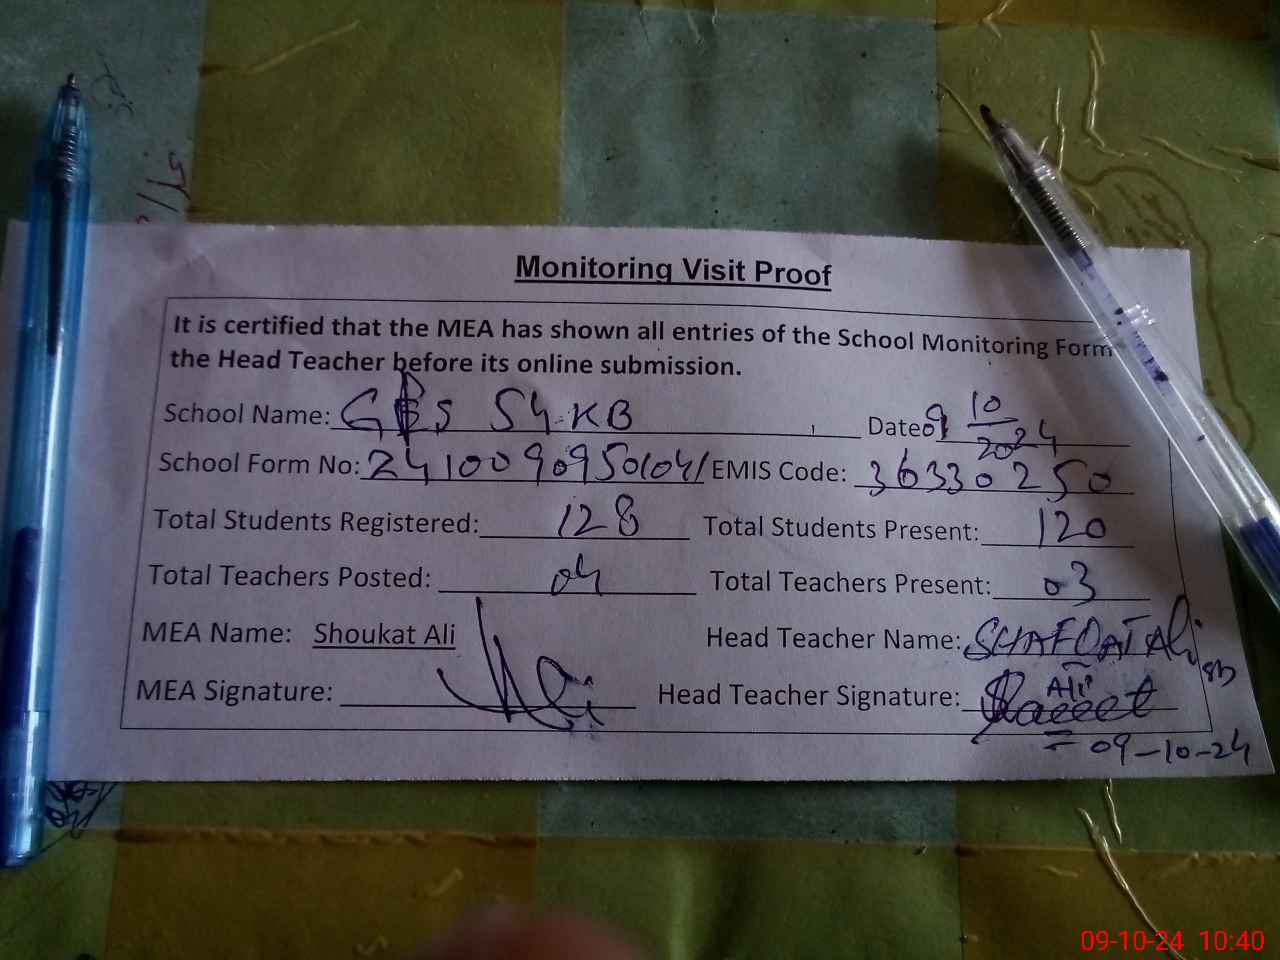 Monitoring Visit Proof
It is certified that the MEA has shown all entries of the School Monitoring Form
the Head Teacher before its online submission.
School Name: GPS 54-KB Date 09 10 2024
School Form No: EMIS Code: 36330250
Total Students Registered: 128 Total Students Present: 120
Total Teachers Posted: 04 Total Teachers Present: 03
MEA Name: Shoukat Ali Head Teacher Name: SHAFQAT Ali
MEA Signature: Head Teacher Signature:
09-10-24
09-10-24 10:40